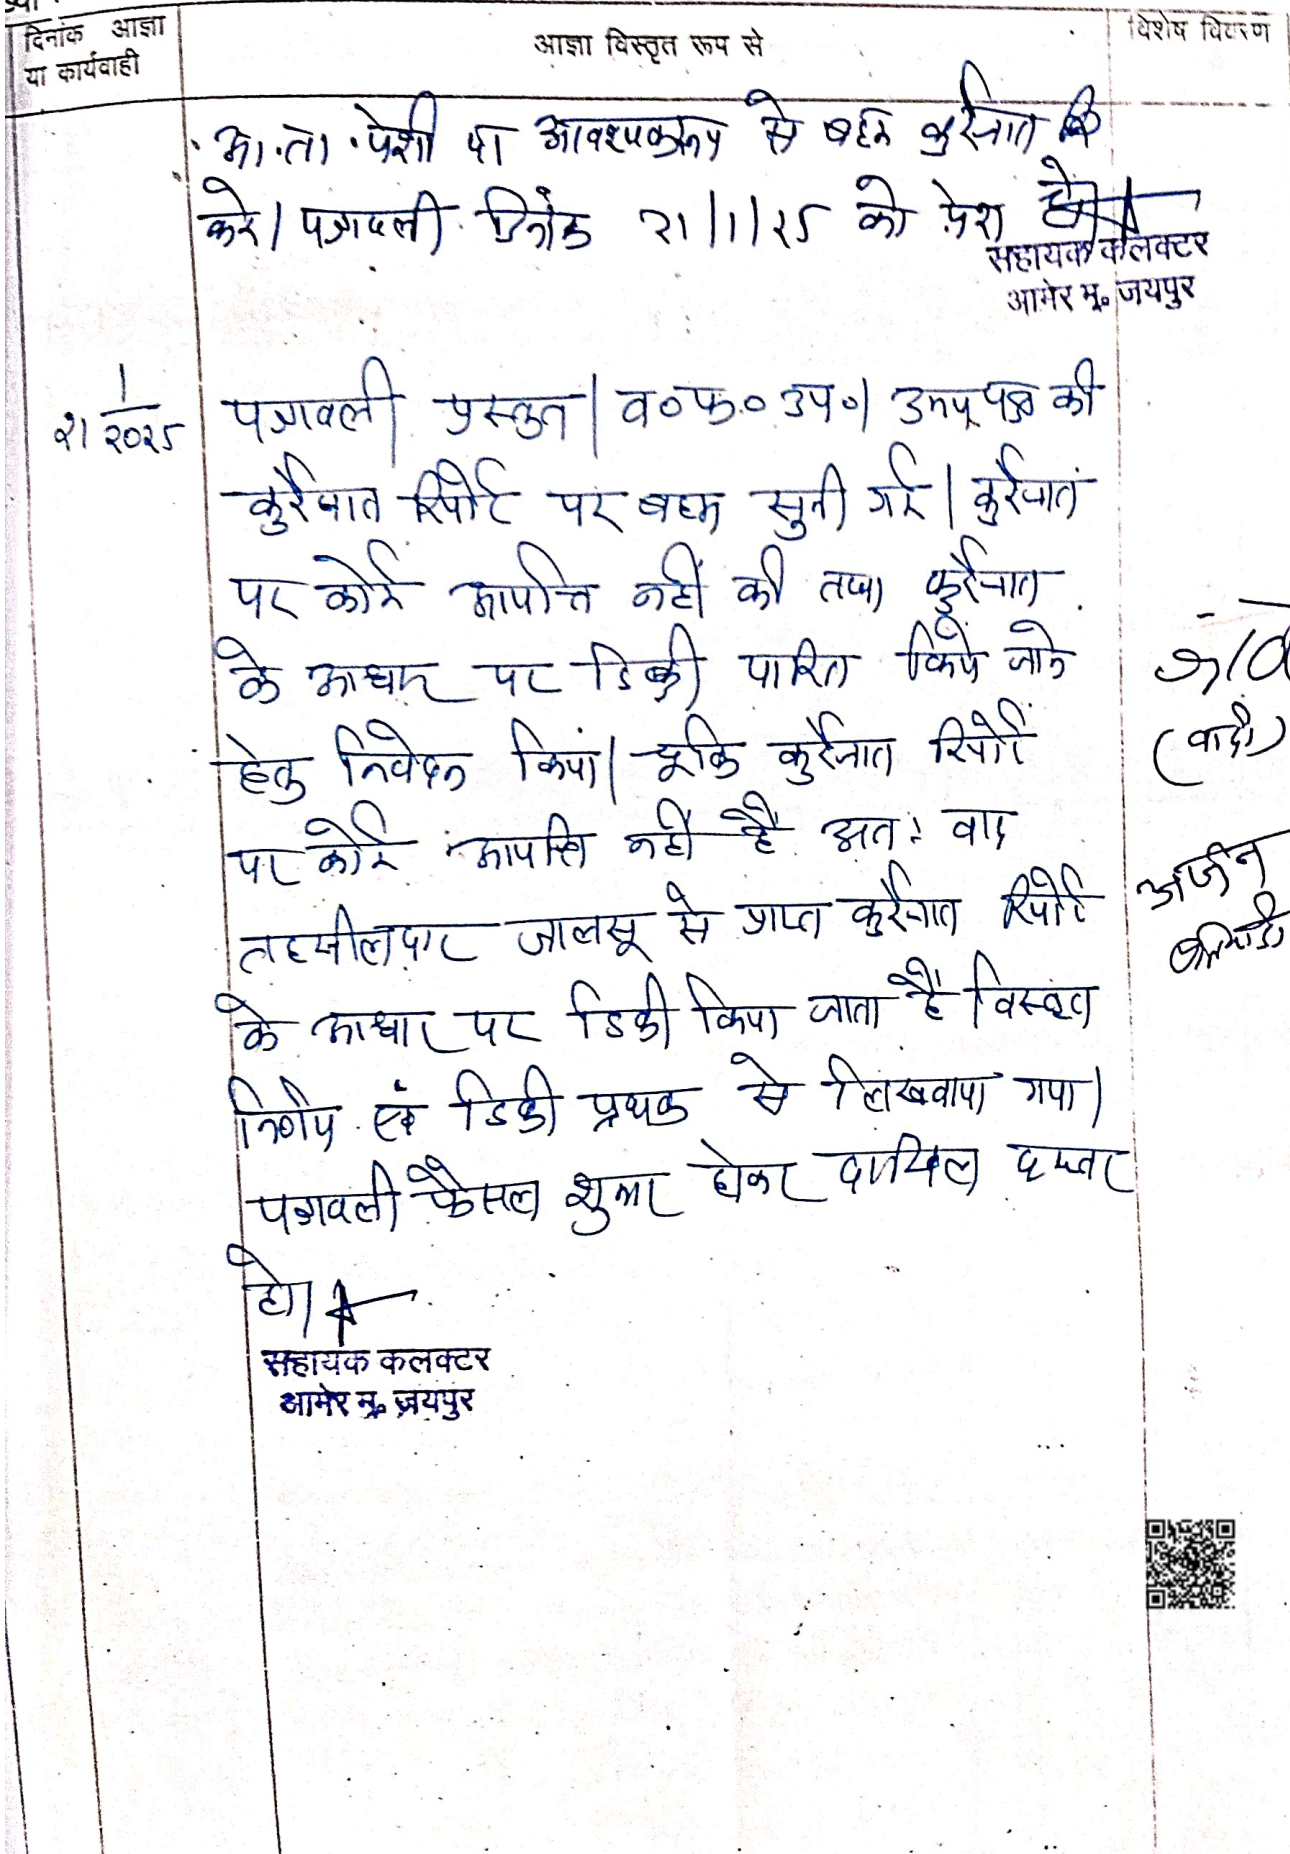 दिनांक आज्ञा
या कार्यवाही
आज्ञा विस्तृत रूप से
विशेष विवरण
आ.ता. पेशी पर आवश्यक रूप से बहस कुर्रेजात
करे। पत्रावली दिनांक 21/1/25 को पेश हो।
सहायक कलक्टर
आमेर मु० जयपुर
21 1/2025
पत्रावली प्रस्तुत। व०फ०उप०। उभयपक्ष की
कुर्रेजात रिपोर्ट पर बहस सुनी गई। कुर्रेजात
पर कोई आपत्ति नहीं की तथा कुर्रेजात
के आधार पर डिक्री पारित किये जाने
हेतु निवेदन किया। चूंकि कुर्रेजात रिपोर्ट
पर कोई आपत्ति नहीं है अतः वाद
तहसीलदार जालसू से प्राप्त कुर्रेजात रिपोर्ट
के आधार पर डिक्री किया जाता है। विस्तृत
निर्णय एवं डिक्री प्रथक से लिखवाया गया।
पत्रावली फैसल शुमार होकर दाखिल दफ्तर
हो।
सहायक कलक्टर
आमेर मु० जयपुर
(वादी)
अर्जुन